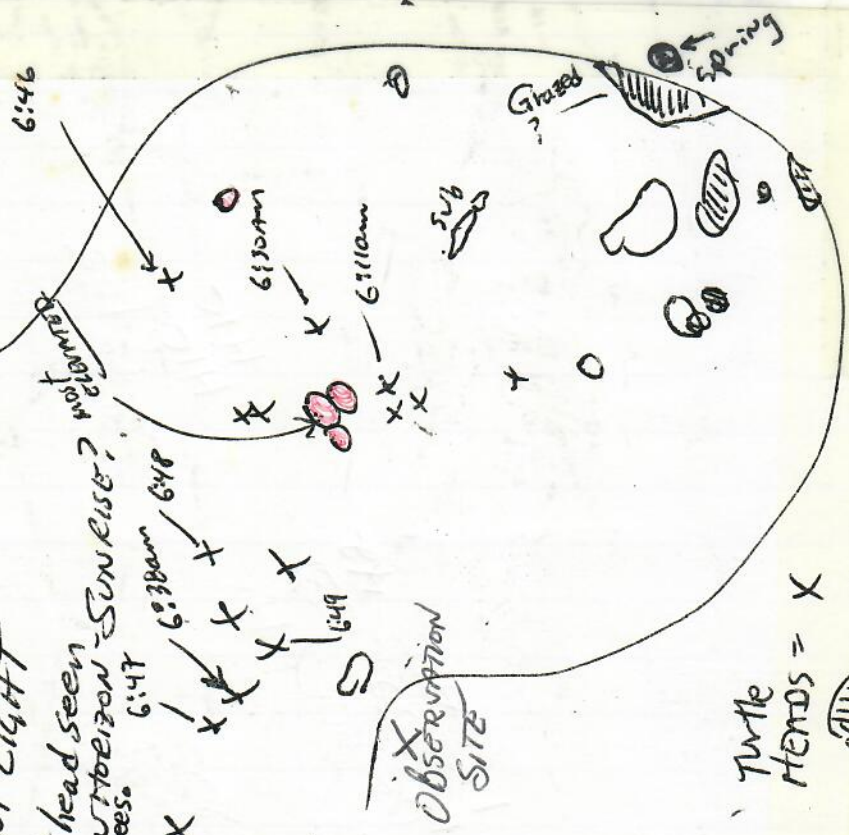 LIGHT
head seen
HORIZON - SUNRISE?
6:47
6:38am
6:48
6:49
6:46
6:30AM
6:11am
Sub
Grazed
?
Spring
X
OBSERVATION
SITE
Turtle
HEADS = X